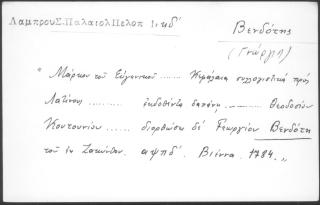 Λαμπρου Σ. Παλαιολ Πελοπ Ι: κδ΄
Βενδότης
(Γεώργι)
" Μάρκου τοῦ Εὐγενικοῦ ........ Κεφάλαια συλλογιστικὰ πρὸς
Λατίνους .......... ἐκδοθέντα δαπάνῃ ........ Θεοδοσίου
Κουτουνίου ........ διορθώσει δὲ Γεωργίου Βενδότη
τοῦ ἐκ Ζακύνθου. αψπδ΄. Βιέννα. 1784. „